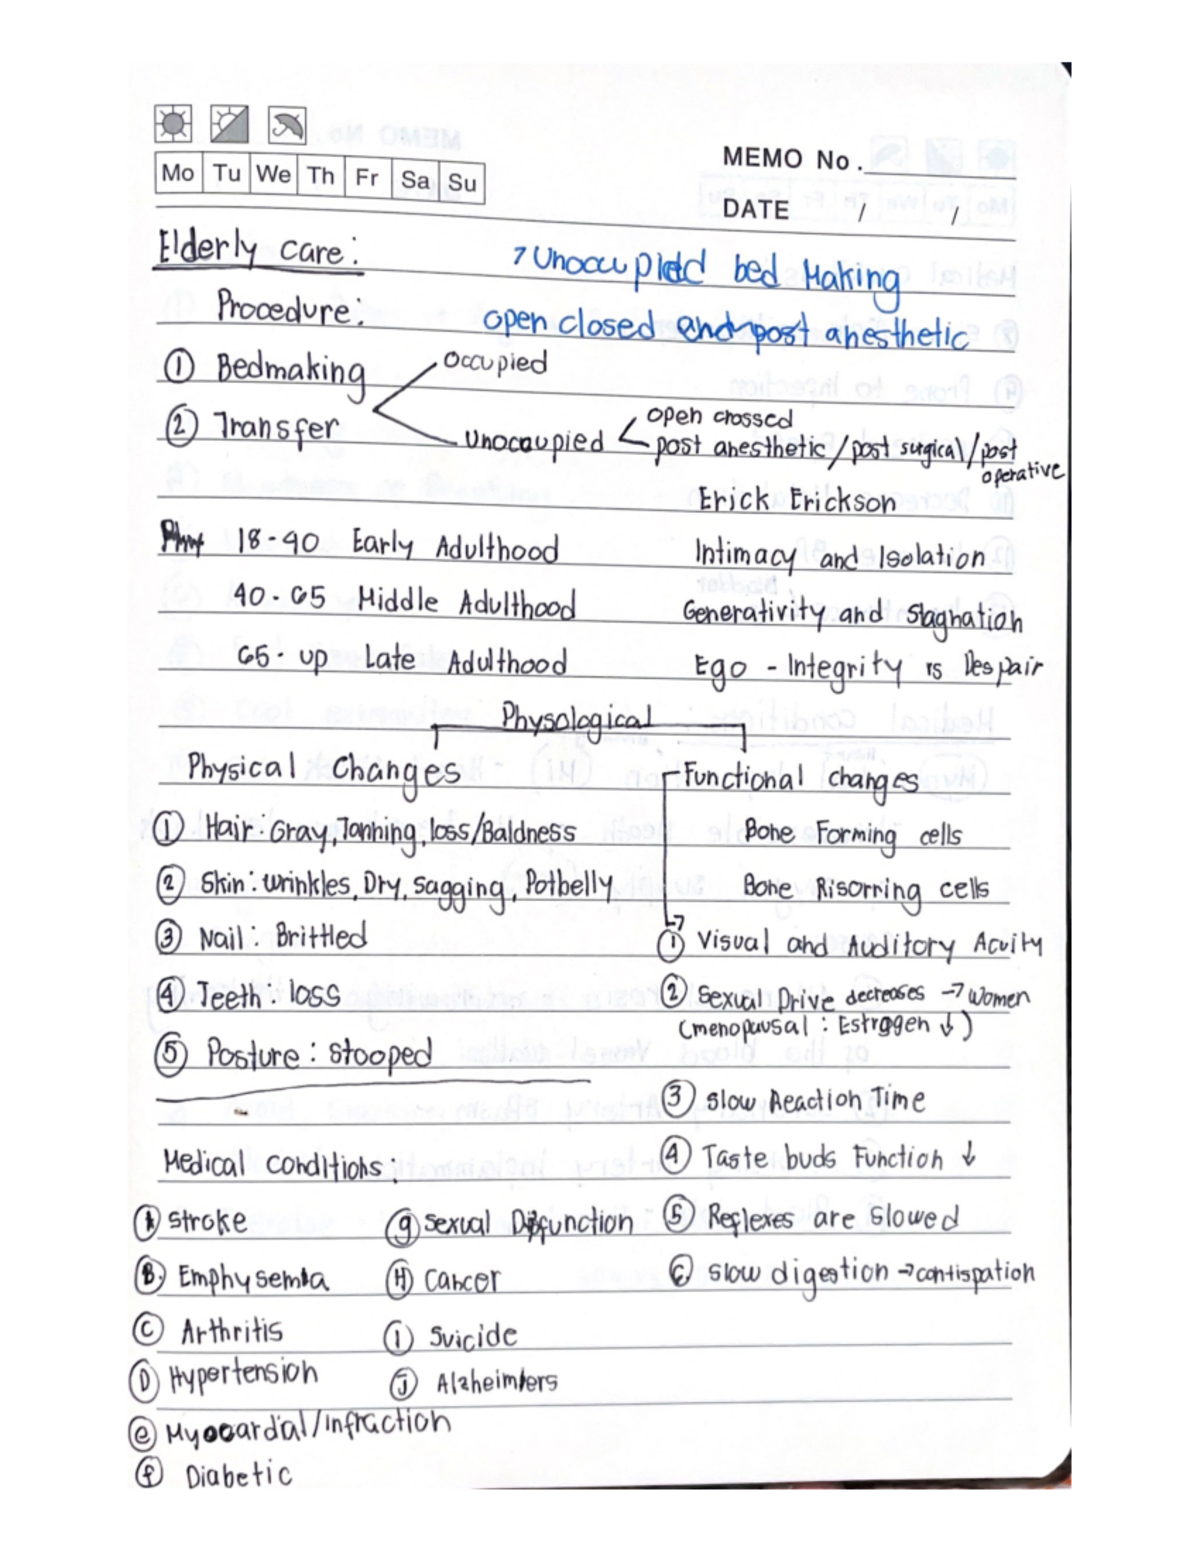 Mo Tu We Th Fr Sa Su
MEMO No.
DATE / /
Elderly care:
Unoccupied bed Making
Procedure:
open closed and post anesthetic
① Bedmaking
occupied
② Transfer
unoccupied
open crossed
post anesthetic/post surgical/post
operative
Erick Erickson
18-40 Early Adulthood
Intimacy and Isolation
40-65 Middle Adulthood
Generativity and Stagnation
65-up Late Adulthood
Ego - Integrity vs Despair
Physological
Physical Changes
Functional changes
① Hair: Gray, Tanning, loss/Baldness
Bone Forming cells
② Skin: wrinkles, Dry, sagging, Potbelly
Bone Risorring cells
③ Nail: Brittled
① Visual and Auditory Acuity
④ Teeth: loss
② Sexual Drive decreases → women
(menopausal: Estrogen ↓)
⑤ Posture: stooped
③ slow Reaction Time
Medical conditions:
④ Taste buds Function ↓
stroke
ⓖ sexual Dysfunction
⑤ Reflexes are slowed
Ⓑ Emphysemia
Ⓗ Cancer
⑥ slow digestion → contispation
Ⓒ Arthritis
Ⓘ Suicide
Ⓓ Hypertension
Ⓙ Alzheimers
ⓔ Myocardial/infraction
ⓕ Diabetic